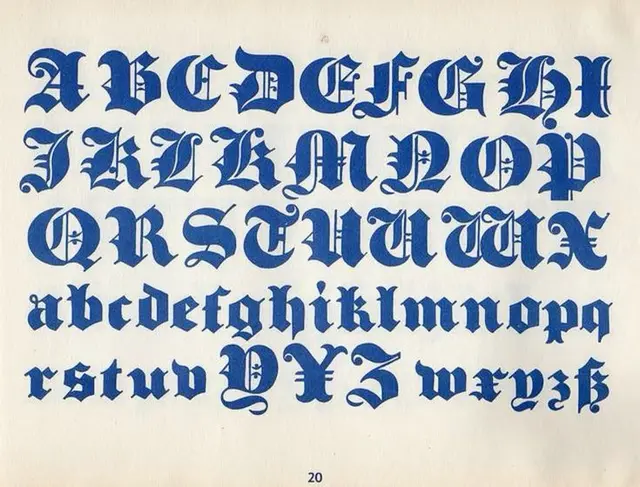 A B C D E F G H I
J K L K M N O P
Q R S T U U W X
a b c d e f g h i k l m n o p q
r s t u v Y Y Z w x y z ß
20